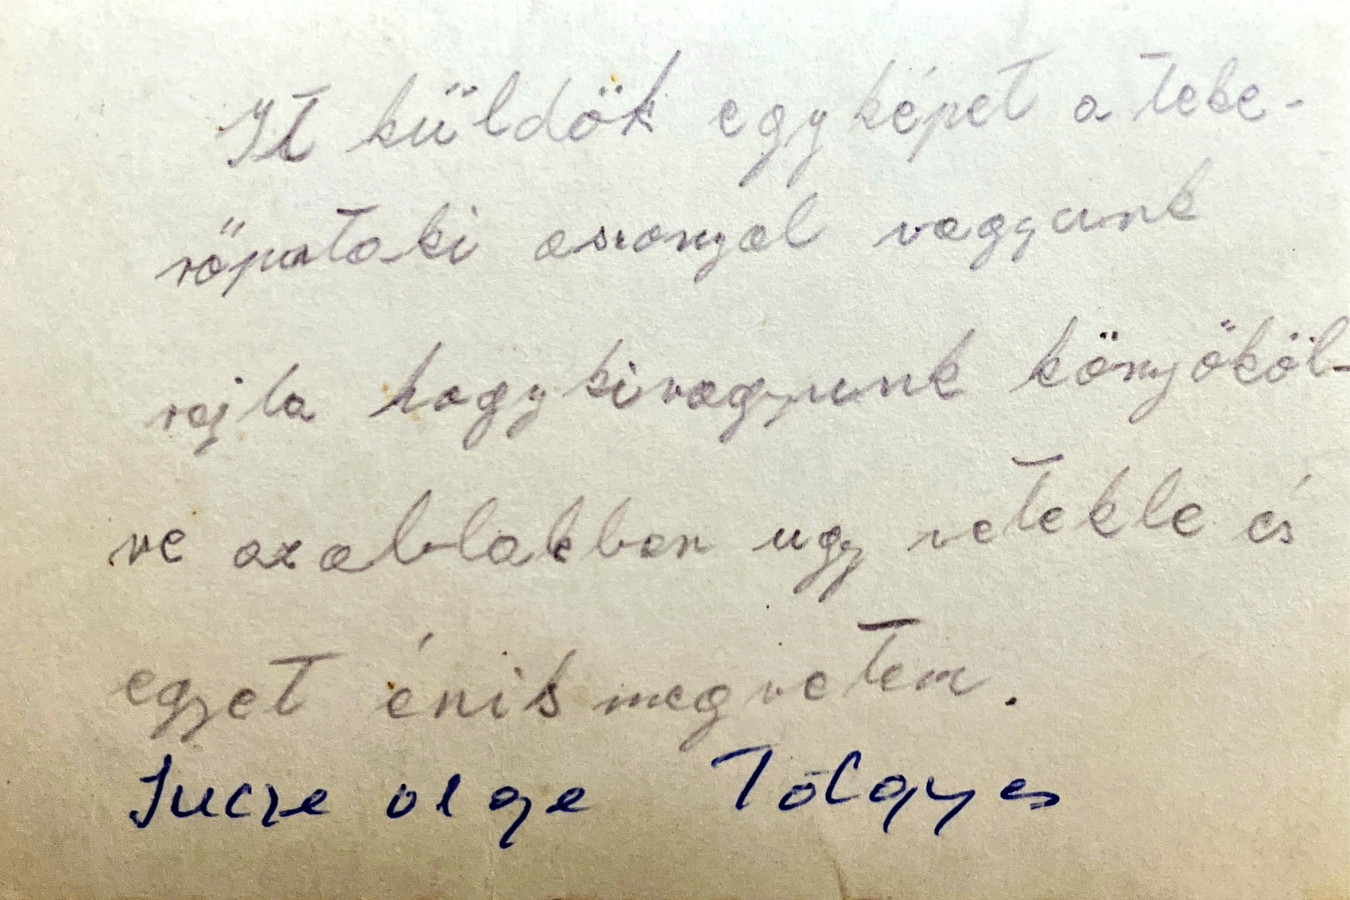 It küldök egy képet a tebe-
röpataki asszonyal vagyunk
rajta hogy kivagyunk könyököl-
ve azablakban ugy vetekle és
egyet énis megvetem.
Tölgyes